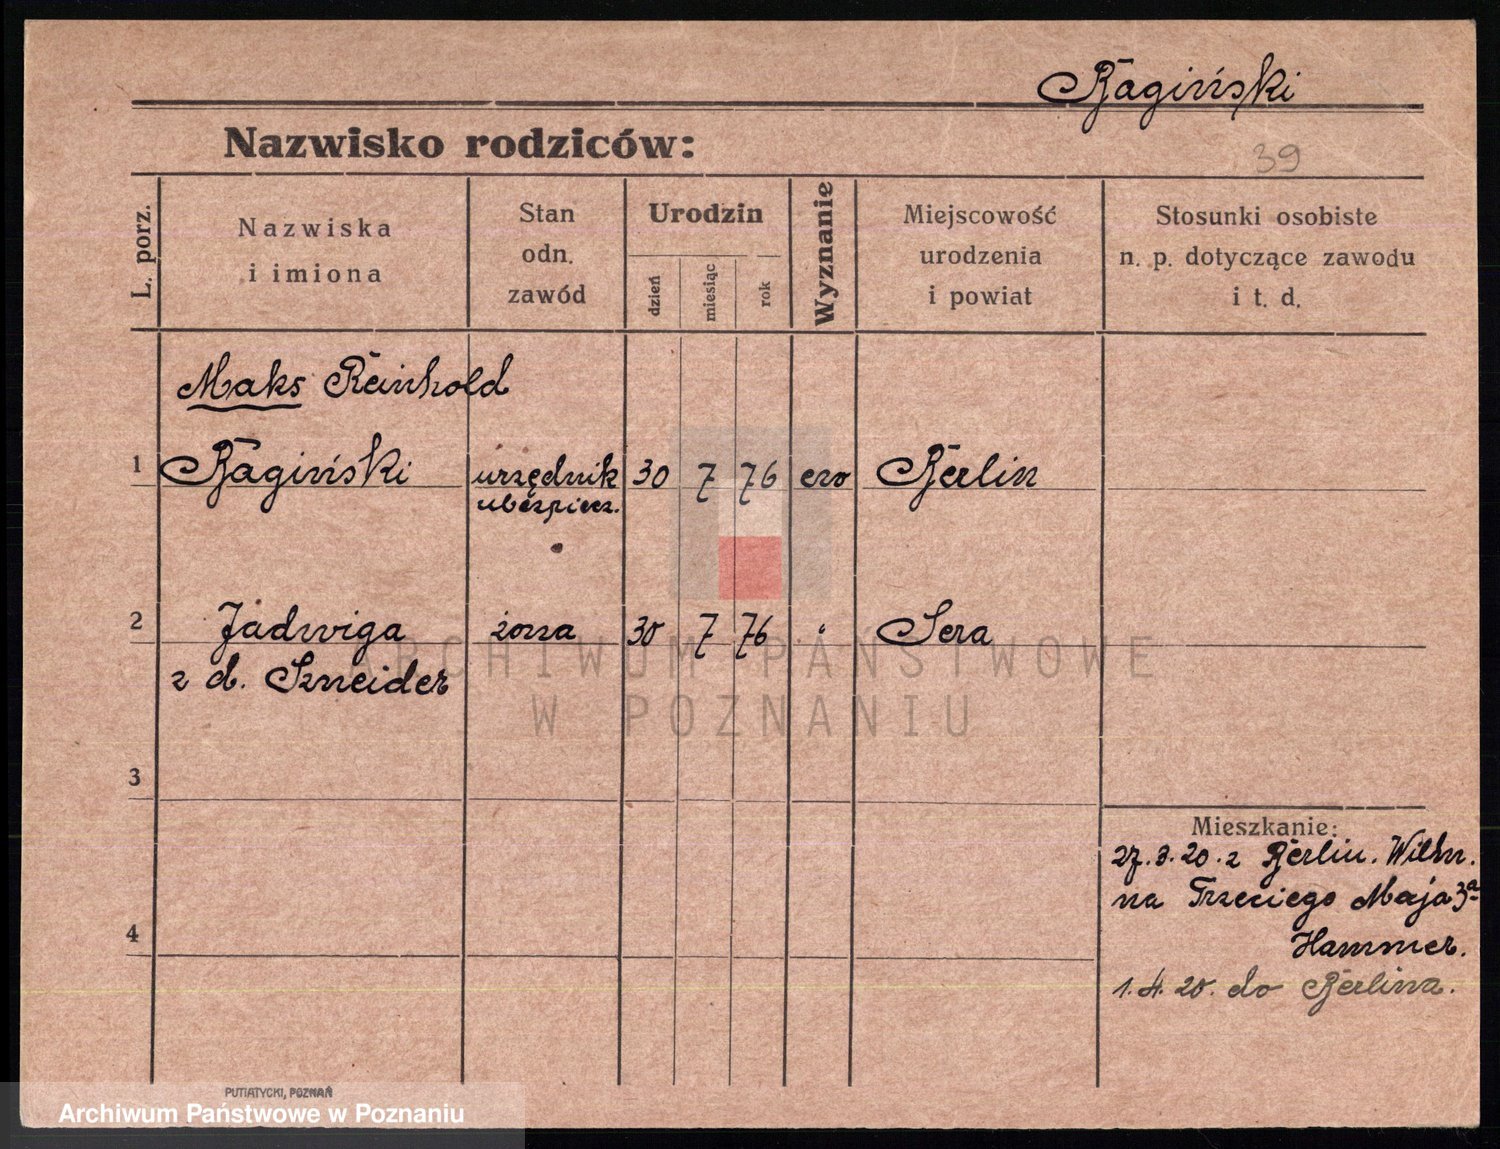 Bagiński
Nazwisko rodziców:
39
L. porz.
Nazwiska
i imiona
Stan
odn.
zawód
Urodzin
dzień
miesiąc
rok
Wyznanie
Miejscowość
urodzenia
i powiat
Stosunki osobiste
n. p. dotyczące zawodu
i t. d.
Maks Reinhold
1 Bagiński urzędnik 30 7 76 ew Berlin
ubezpiecz.
2 Jadwiga żona 30 7 76 " Sera
z d. Szneider
ARCHIWUM PAŃSTWOWE
W POZNANIU
3
4
Mieszkanie:
27.3.20. z Berlin. Wilm.
na Trzeciego Maja 3a
Hammer.
1.4.20. do Berlina.
PUTIATYCKI, POZNAŃ
Archiwum Państwowe w Poznaniu